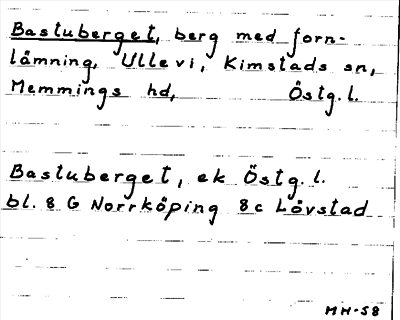 Bastuberget, berg med forn-
lämning, Ullevi, Kimstads sn,
Memmings hd, Östg.l.
Bastuberget, ek Östg.l.
bl. 8 G Norrköping 8c Lövstad
MH-58